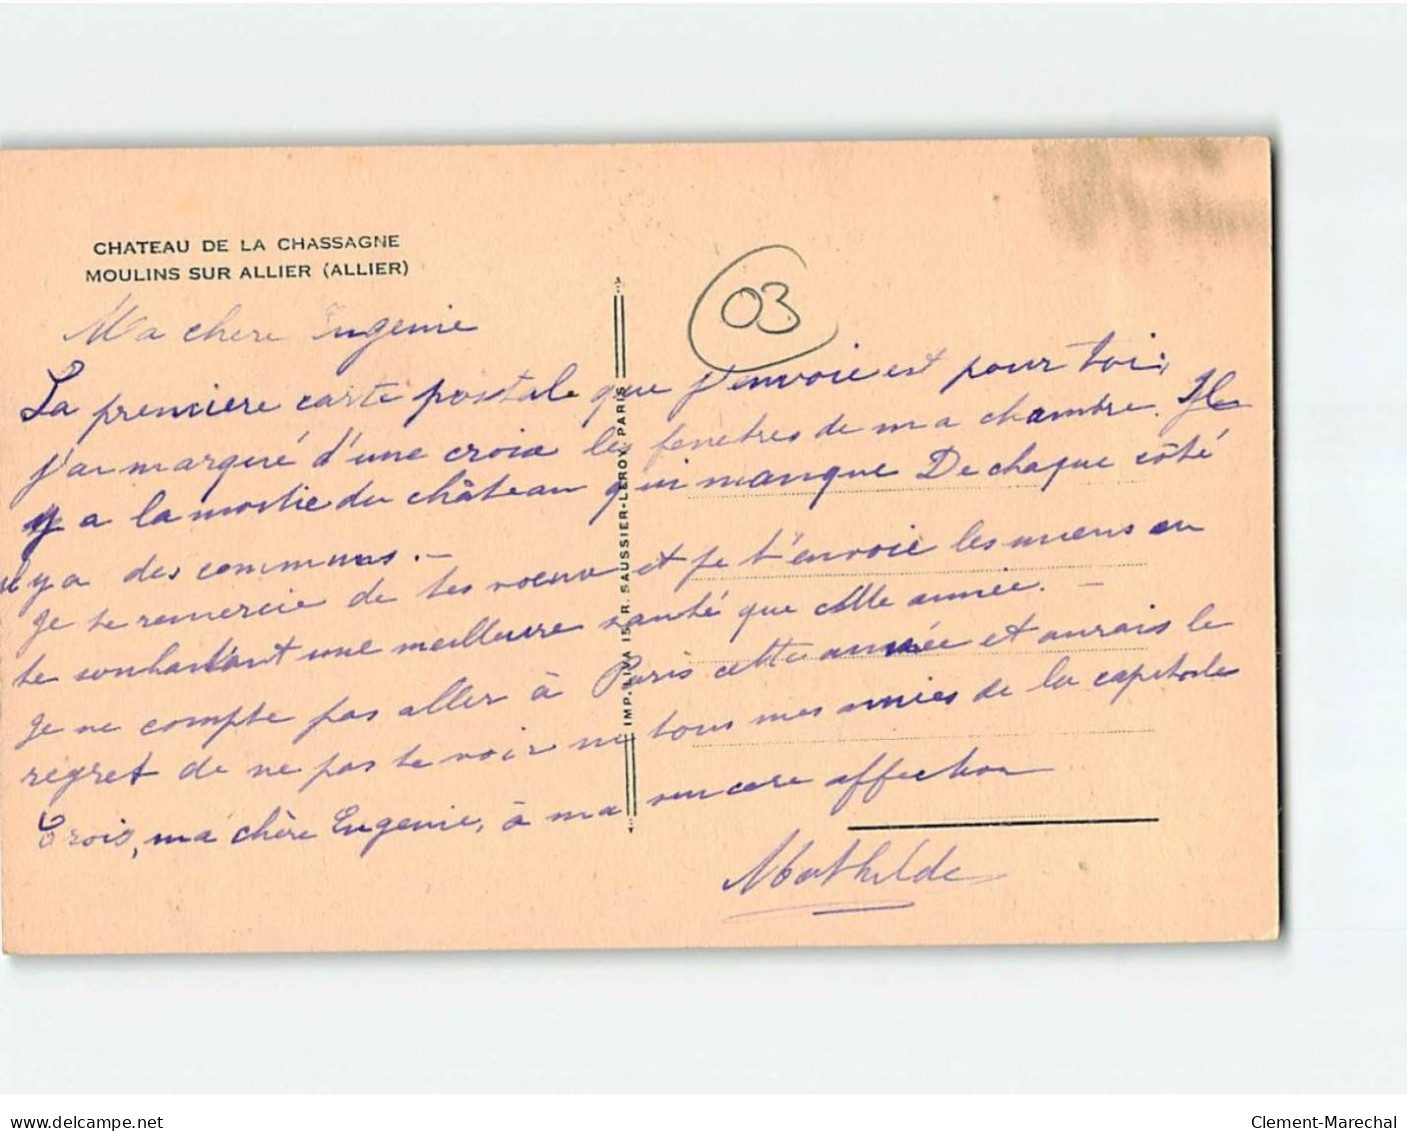 CHATEAU DE LA CHASSAGNE
MOULINS SUR ALLIER (ALLIER)
03
Ma chère Eugenie
La premiere carte postale que j'envoie est pour toi;
j'ai marqué d'une croix les fenetres de ma chambre. Il
y a la moitie du château qui manque De chaque côté
il y a des communs. —
Je te remercie de tes voeux et je t'envoie les miens en
te souhaitant une meilleure santé que cette année. —
Je ne compte pas aller à Paris cette année et aurais le
regret de ne pas te voir ni tous mes amies de la capitale
Crois, ma chère Eugenie, à ma sincere affection
Mathilde
IMP. LIVA 15, R. SAUSSIER-LEROY PARIS
www.delcampe.net
Clement-Marechal